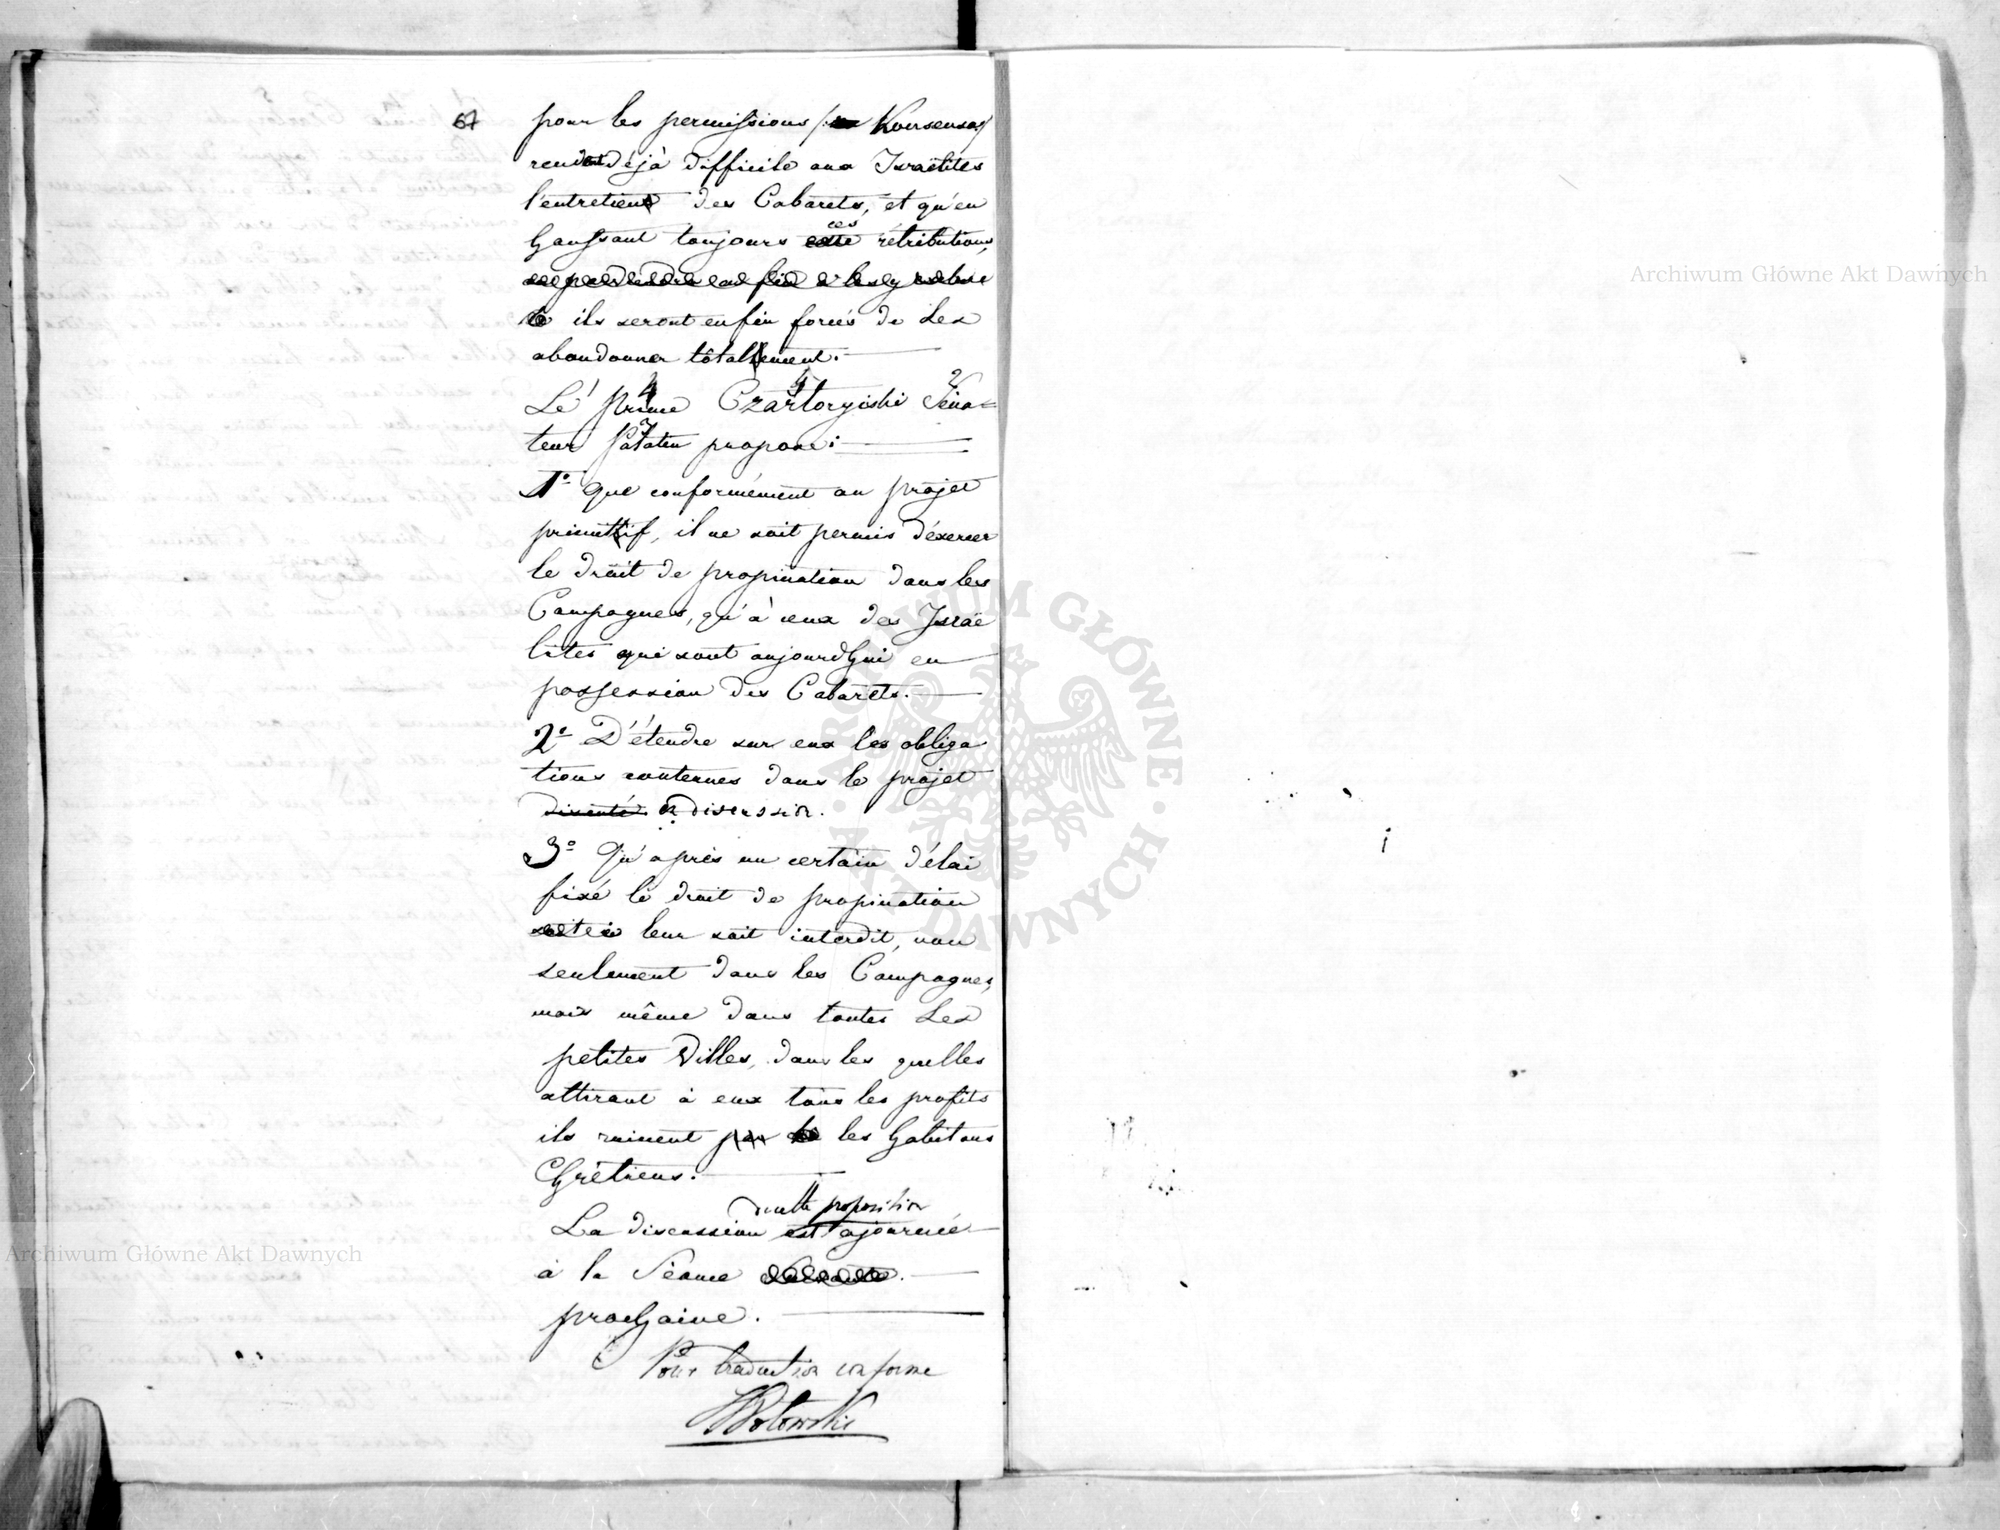 67
pour les permissions /: Konsensa :/
rend déjà difficile aux Israëlites
l'entretien des Cabarets, et qu'en
haussant toujours ces rétributions,
ils seront enfin forcés de Les
abandonner tôtallement.
Le prince Czartoryiski Séna=
teur Palatin propose:
1º que conformément au projet
primitif, il ne soit permis d'éxercer
le droit de propination dans les
Campagnes, qu'à ceux des Israë
lites qui sont aujourdhui en
possession des Cabarets.
2º D'étendre sur eux les obliga
tions contenues dans le projet
discuté en discussion.
3º Qu'après un certain délai
fixé le droit de propination
leur soit interdit, non
seulement dans les Campagnes,
mais même dans toutes Les
petites Villes, dans les quelles
attirant à eux tous les profits
ils ruinent les habitans
Chrétiens.
de cette proposition
La discussion est ajournée
à la Séance
prochaine.
Pour traduction conforme
Archiwum Główne Akt Dawnych
Archiwum Główne Akt Dawnych
ARCHIWUM GŁÓWNE · AKT DAWNYCH ·